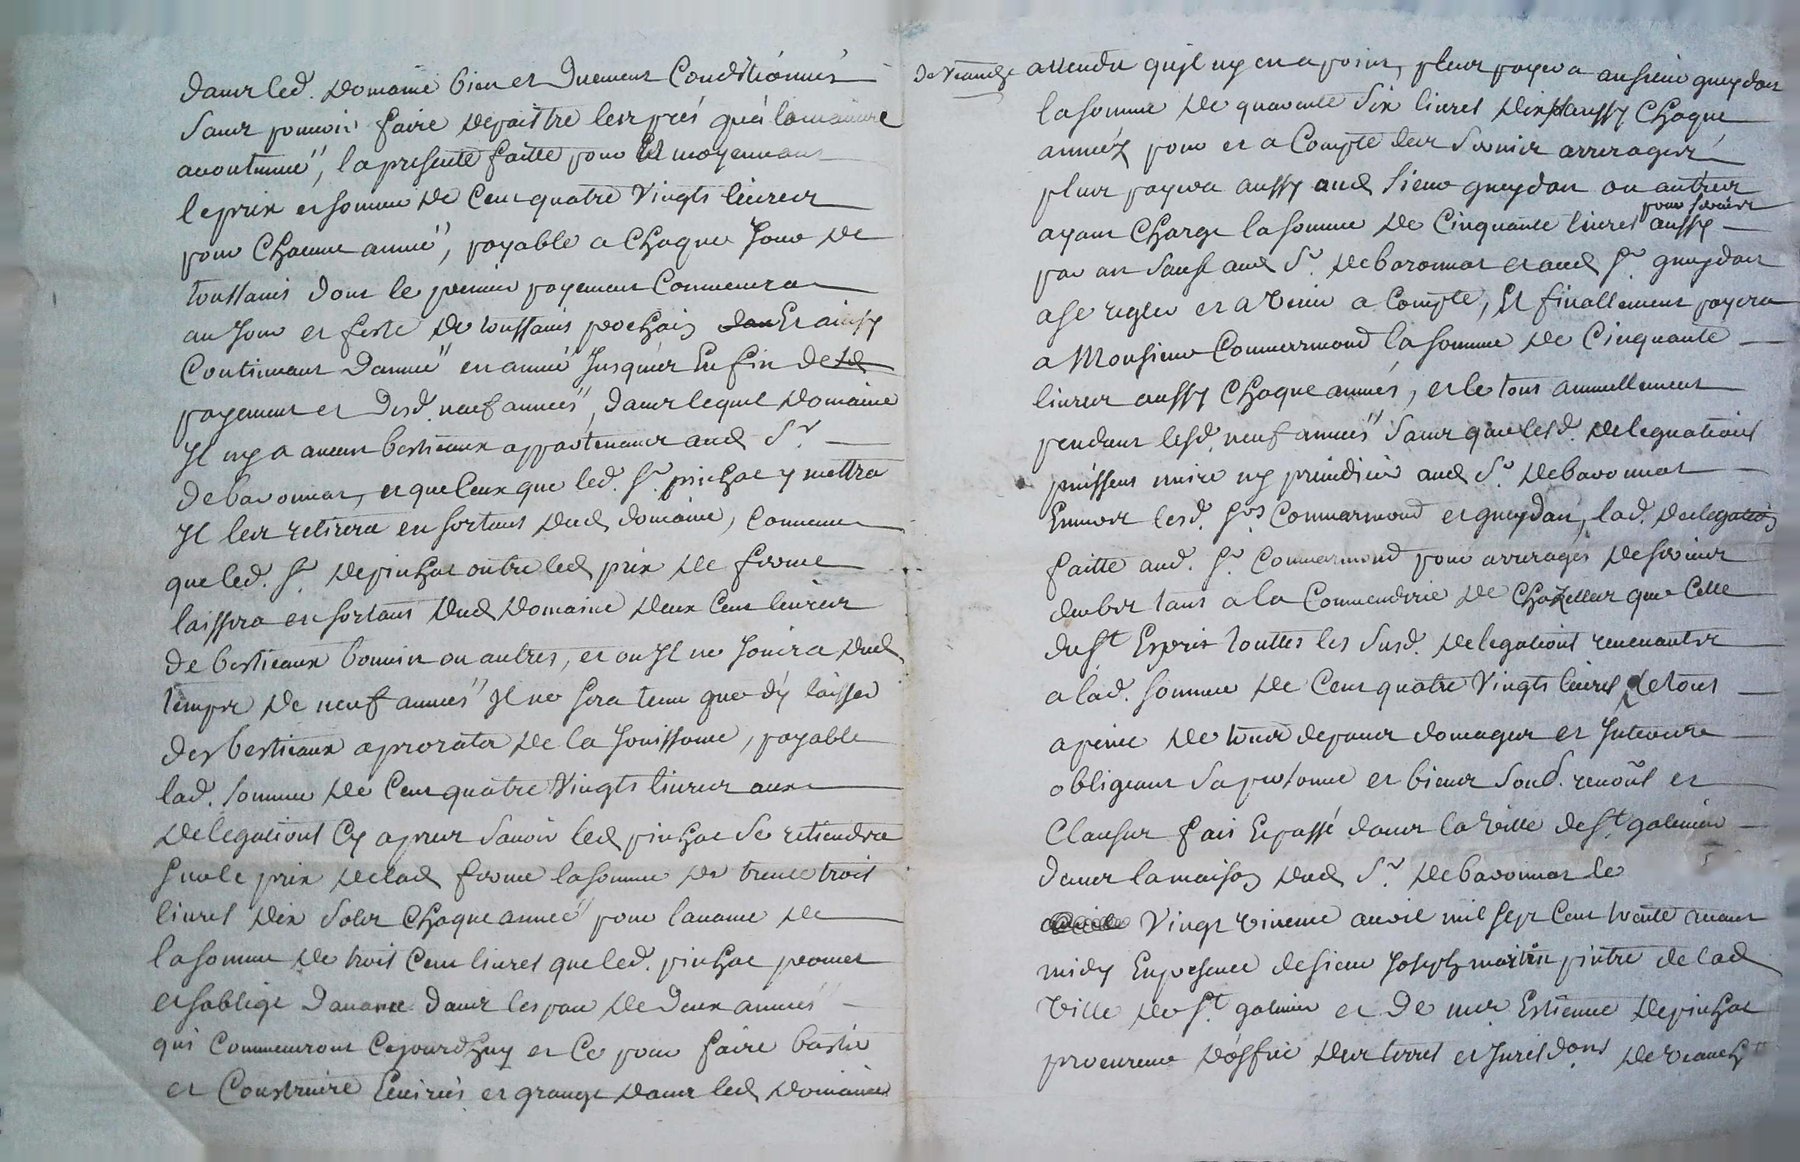 dans led. Domaine bien et Duement Conditionnés
Sans pouvoir faire depaistre les prés qu'a la maniere
acoutumée, la presente faitte pour Et moyennant
le prix et somme De Cent quatre Vingts livres
pour Chacune année, payable a Chaque Jour De
toussaint dont le premier payement Commencera
au Jour et feste De toussaint prochain Et ainsy
Continuant D'année en année Jusques En fin de
payement et Desd. neuf années, dans lequel Domaine
Jl ny a aucuns bestieaux appartenants aud Sr
debaronnat, et que Ceux que led. Sr. pinhac y mettra
Jl les retirera en sortant dud domaine, Comme
que led. Sr Depinhac outre led prix De ferme
laissera en sortant Dud Domaine Deux Cent livres
De bestieaux bovins ou autres, et ou Jl ne Jouira Dud
temps De neuf années Jl ne sera tenu que d'y laisser
des bestieaux a prorata De la Jouissance, payable
lad. somme De Cent quatre Vingts livres aux
Delegations Cy apres Savoir led pinhac Se retiendra
Sur le prix Delad ferme la somme De trente trois
livres Dix Sols Chaque année pour l'avance De
la somme De trois Cent livres que led. pinhac promet
et s'oblige D'avancer Dans Deux années
qui Commenceront Cejourdhuy et Ce pour faire bastir
et Construire Ecuries et grange Dans led Domaine
attendu qu'jl ny en a point, plus payera au sieur gueydan
la somme De quarante Six livres Dix aussy Chaque
année pour et a Compte des arrerages
plus payera aussy aud Sieur gueydan ou autres
pour servis
ayant Charge la somme De Cinquante livres aussy
par an Sauf aud Sr. Debaronnat et aud Sr. gueydan
a se regler et a Venir a Compte, Et finallement payera
a Monsieur Commarmond la somme De Cinquante
livres aussy Chaque années, et le tout annuellement
pendant lesd. neuf années Sans que lesd. Delegations
puissent nuire ny prejudicier aud Sr. Debaronnat
Envers lesd. Srs Commarmond et gueydan, lad. delegation
faitte aud. Sr. Commarmond pour arrerages De servis
deubs tant a la Commenderie De Chazelles que Celle
du St Esprit touttes les Susd. Delegations revenantes
a lad. somme De Cent quatre Vingts livres, Le tout
a peine De tous depens domages et Jnterests
obligeant Sa personne et biens Soub. renoñs et
Clauses fait Et passé dans la Ville de St. galmier
Dans la maison Dud Sr. Debaronnat le
Vingt avril mil Sept Cent trente avant
midy En presence de sieur Joseph martin pintre de lad
Ville De St galmier et De mre Estienne Depinhac
procureur D'office Des terres et Jurisdons